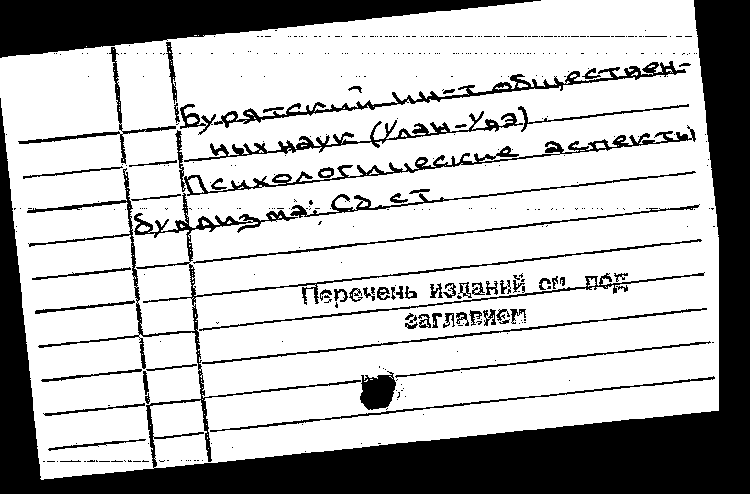 Бурятский ин-т обществен-
ных наук (Улан-Удэ).
Психологические аспекты
буддизма: Сб. ст.
Перечень изданий см. под
заглавием